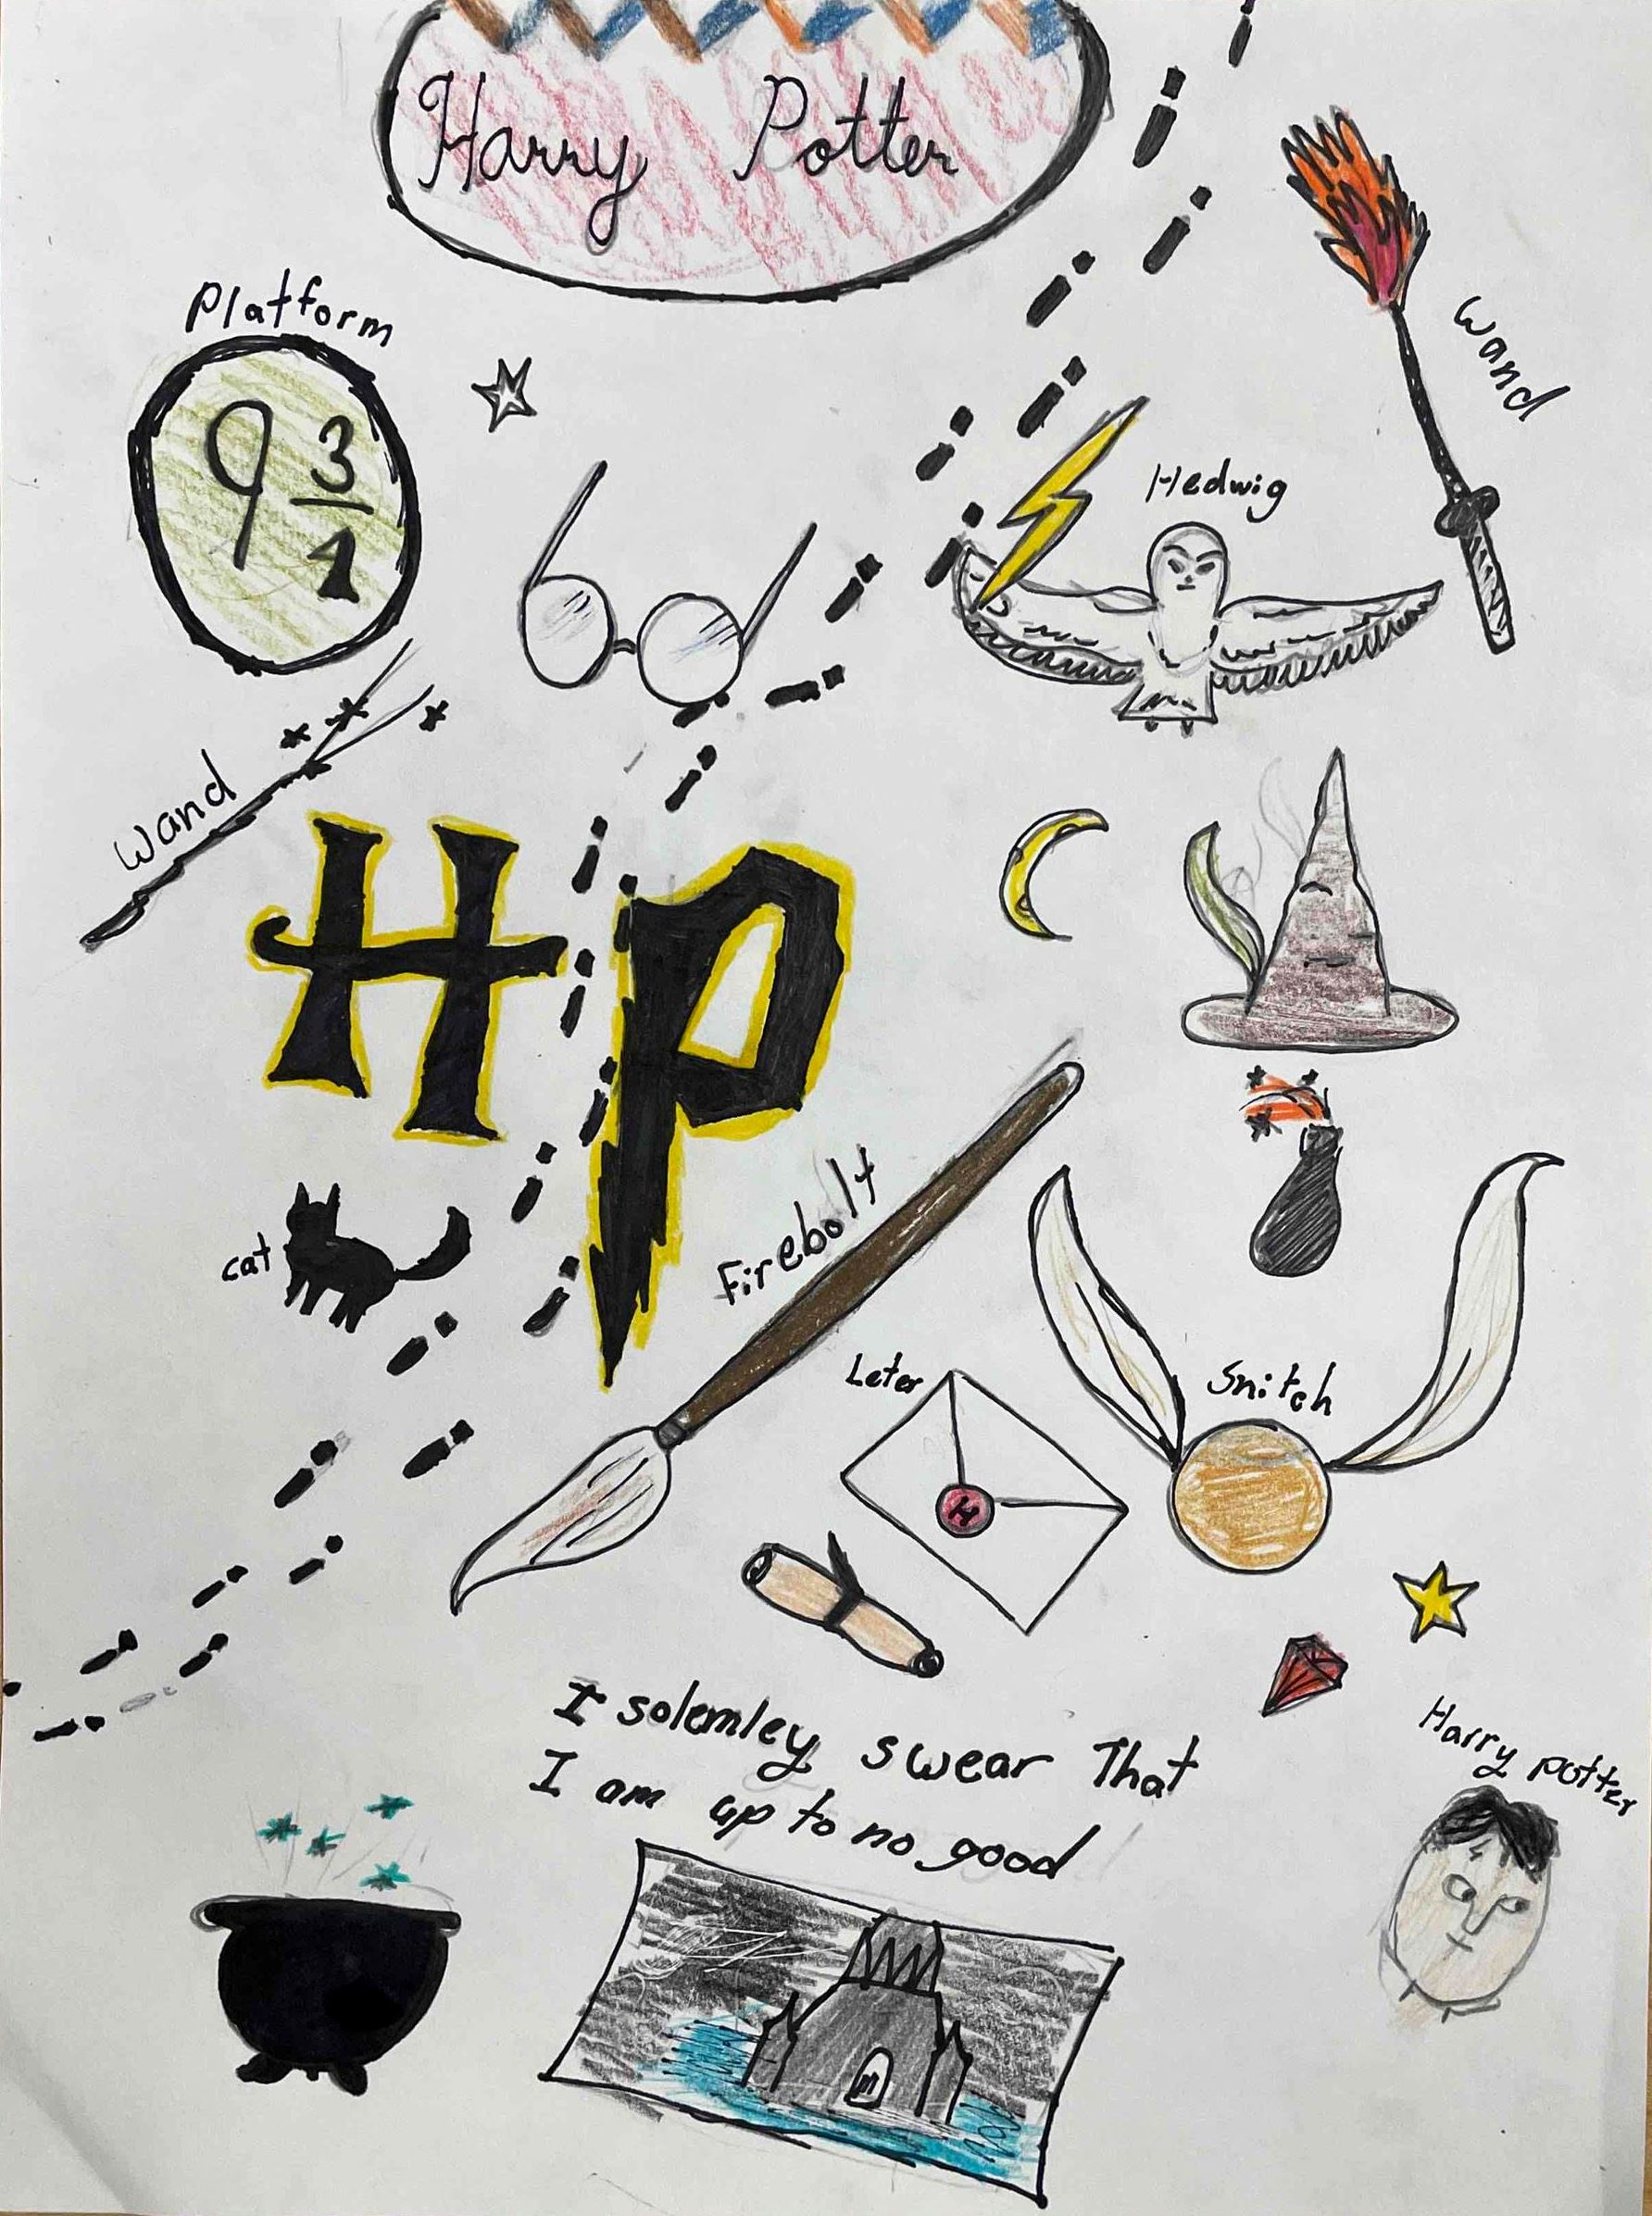 Harry Potter
Platform
9 3/4
wand
Hedwig
wand
HP
Firebolt
cat
Leter
H
Snitch
I solemley swear That
I am up to no good
Harry potter